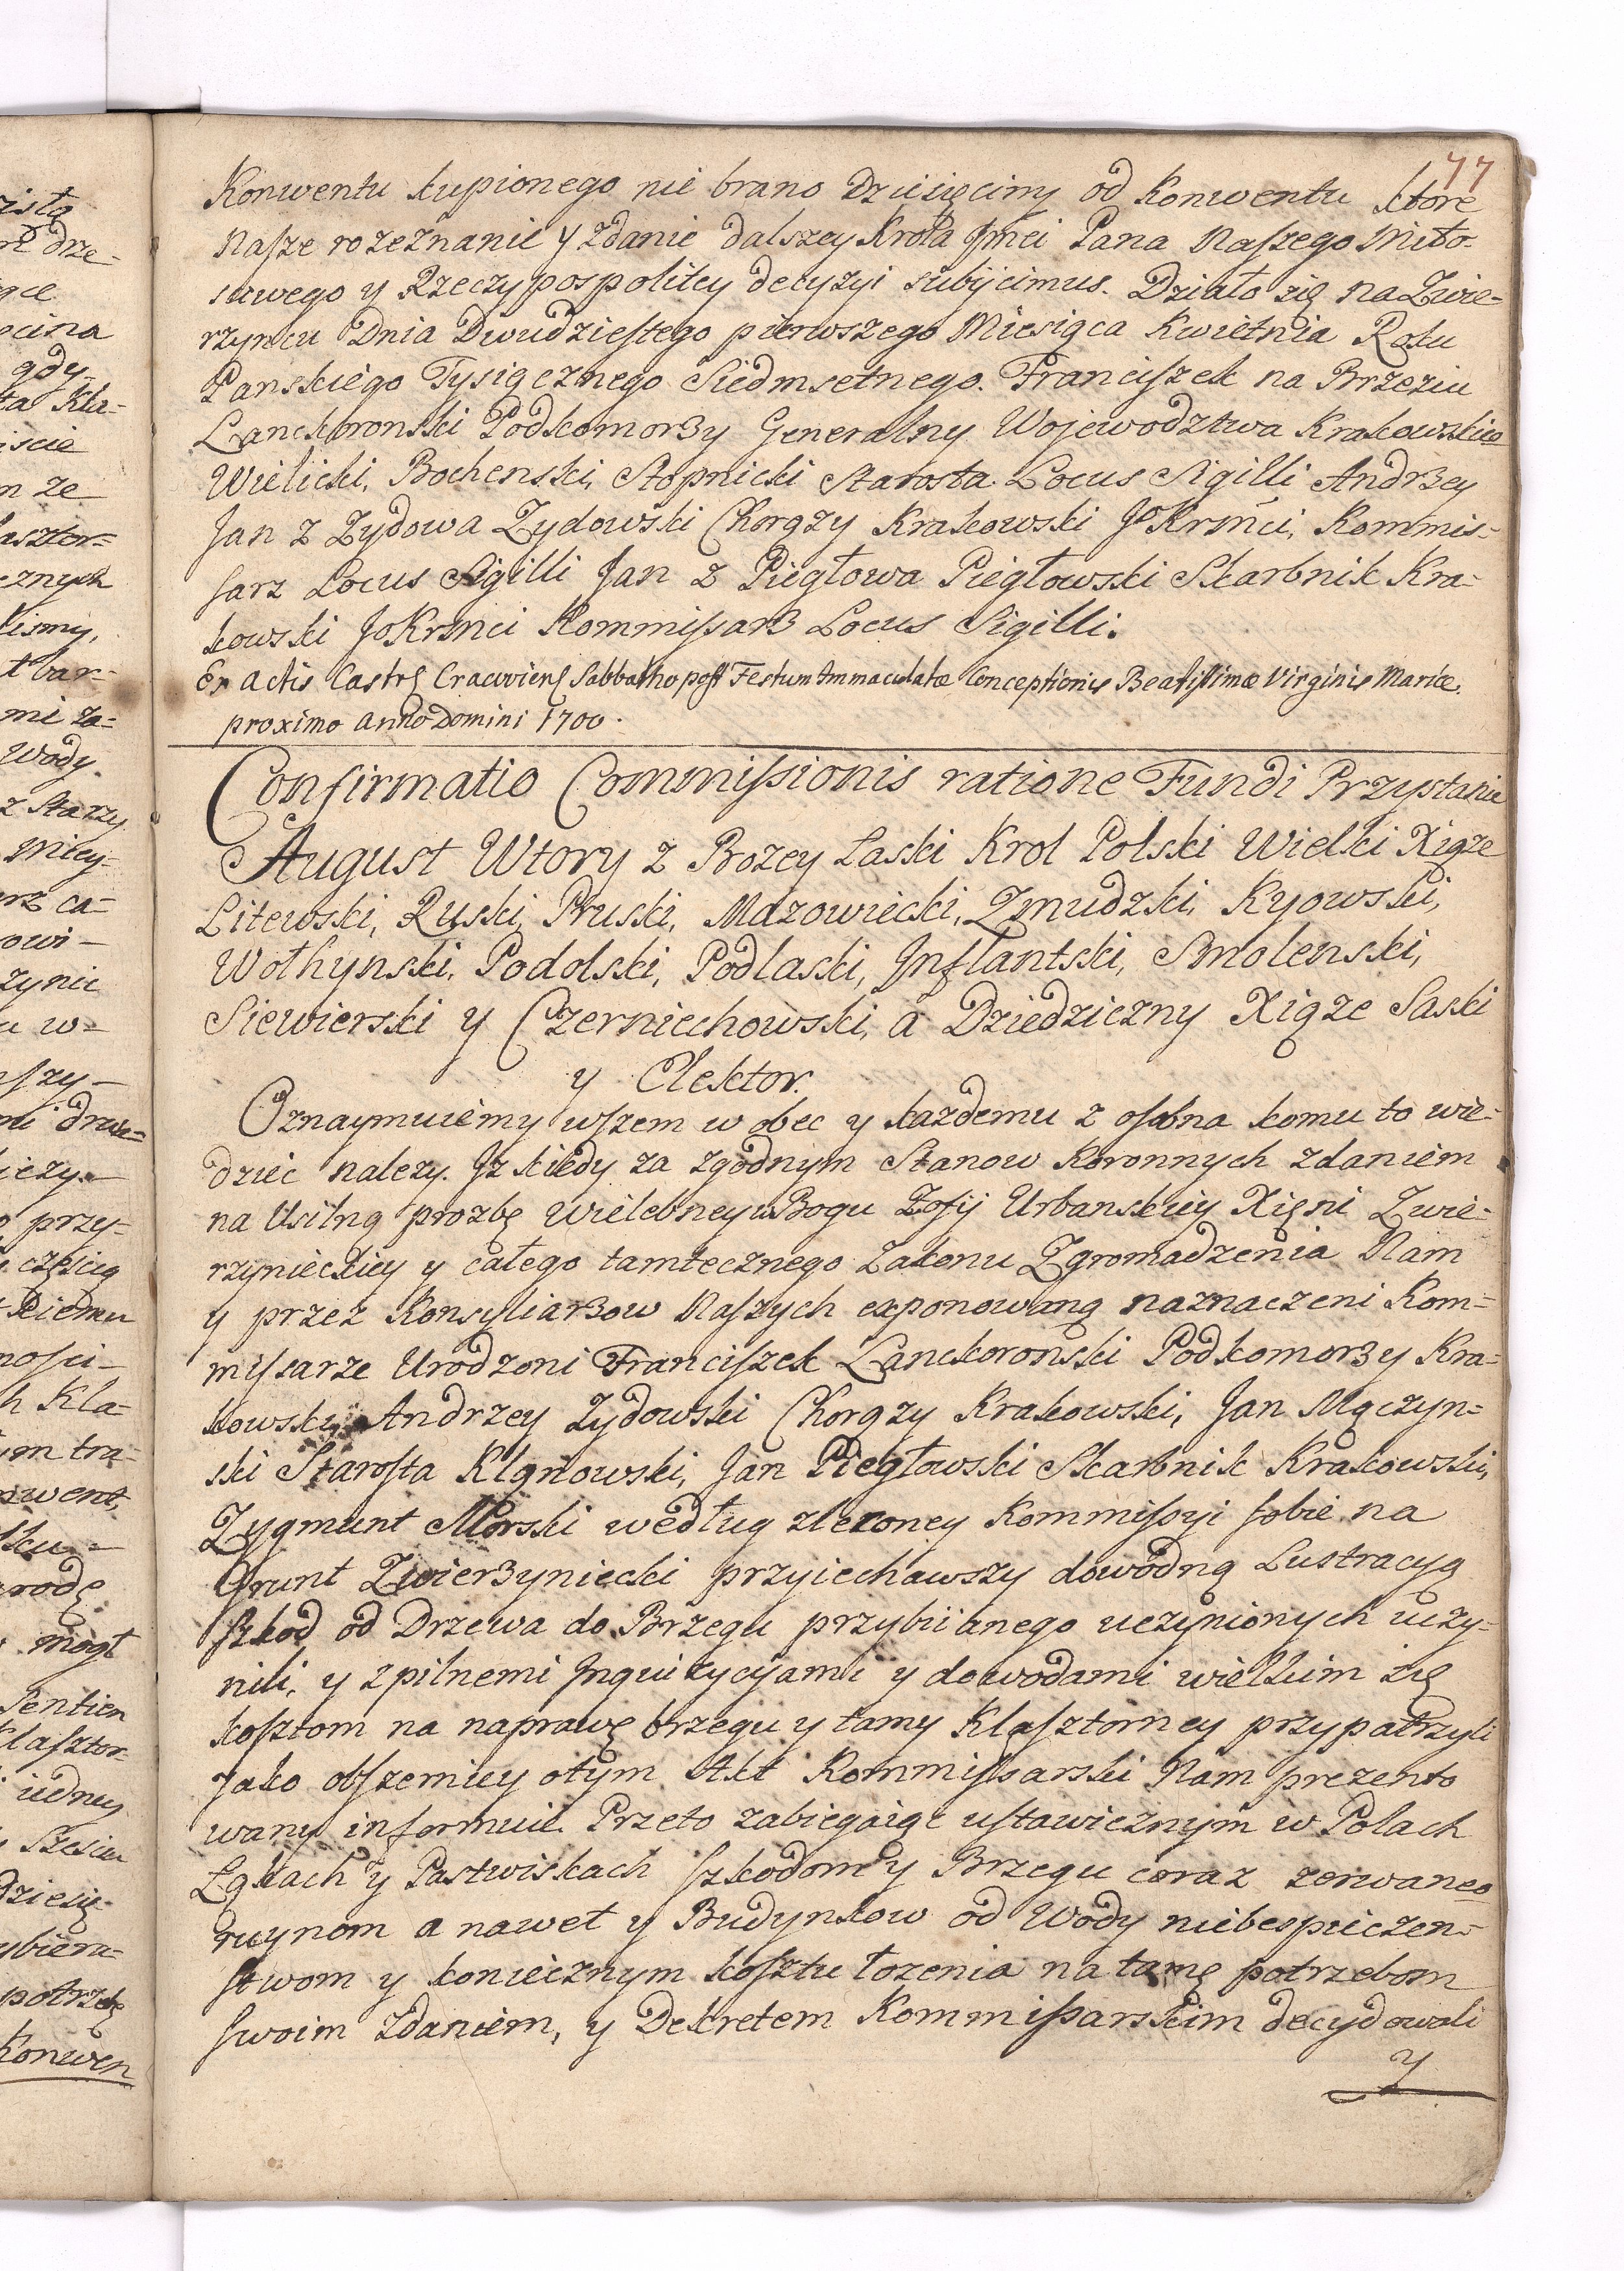 77
Konwentu kupionego nie brano Dziesięciny od Konwentu ktore
Nasze rozeznanie y zdanie dalszey Krola Jmci Pana Naszego Miło-
sciwego y Rzeczypospolitey decyzyi subijcimus. Działo się na Zwie-
rzyncu Dnia Dwudziestego pierwszego Miesiąca Kwietnia Roku
Panskiego Tysiącznego Siedmsetnego. Franciszek na Brzeziu
Lanckoronski Podkomorzy Generalny Wojewodztwa Krakowskiego
Wielicki, Bochenski, Stopnicki Starosta. Locus Sigilli Andrzey
Jan z Zydowa Zydowski Chorązy Krakowski JoKrmci, Kommis-
sarz Locus Sigilli Jan z Piegłowa Piegłowski Skarbnik Kra-
kowski JoKrmci Kommissarz Locus Sigilli.
Ex actis Castr Cracoviens Sabbatho post Festum Immaculatæ Conceptionis Beatissimæ Virginis Mariæ
proximo anno Domini 1700.
Confirmatio Commissionis ratione Fundi Przystanie
August Wtory z Bozey Laski Krol Polski Wielki Xiąze
Litewski, Ruski, Pruski, Mazowiecki, Zmudzki, Kyowski,
Wołhynski, Podolski, Podlaski, Inflantski, Smolenski,
Siewierski y Czerniechowski, a Dziedziczny Xiąze Saski
y Elektor.
Oznaymuiemy wszem w obec y kazdemu z osobna komu to wie-
dziec nalezy. Iz kiedy za zgodnym Stanow Koronnych zdaniem
na Usilną prozbę Wielebney w Bogu Zofij Urbanskiey Xięni Zwie-
rzynieckiey y całego tamtecznego Zakonu Zgromadzenia Nam
y przez Konsyliarzow Naszych exponowaną naznaczeni Kom-
missarze Urodzoni Franciszek Lanckoronski Podkomorzy Kra-
kowski, Andrzey Zydowski Chorązy Krakowski, Jan Mączyn-
ski Starosta Klonowski, Jan Piegłowski Skarbnik Krakowski,
Zygmunt Morski według zleconey Kommissyi sobie na
Grunt Zwierzyniecki przyiechawszy dowodną Lustracyą
szkod od Drzewa do Brzegu przybiianego uczynionych uczy-
nili, y z pilnemi Inquizycyami y dowodami wielkim się
kosztom na naprawę brzegu y tamy Klasztorney przypatrzyli
Jako obszerniey o tym Akt Kommissarski Nam prezento
wany informuie. Przeto zabiegaiąc ustawicznym w Polach
Łąkach y Pastwiskach szkodom y Brzegu coraz zerwaneo
ruynom a nawet y Budynkow od Wody niebespieczen-
stwom y koniecznym kosztu łozenia na tamę potrzebom
swoim zdaniem, y Dekretem Kommissarskim decydowali
y